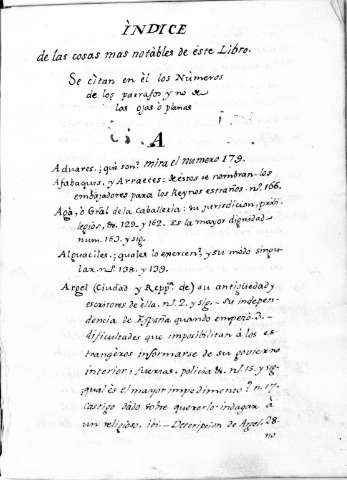 ÌNDICE
de las cosas mas notàbles de èste Libro.
Se cìtan en èl los Nùmeros
de los parrafos y no de
las ojas ò planas
A
Aduares. ¿què son? mira el numero 179.
Afabaquis, y Arraeces: de èstos se nombran los
embajadores para los Reynos estraños. nº. 166.
Agà, ò Gràl de la Caballeria: su jurisdicion, privi-
legios, &. 129. y 162. Es la mayor dignidad
num. 163. y sig.
Alguaciles. ¿quales lo exercen? y su mòdo singu-
lar. nº. 138. y 139.
Argel (Ciudad y Repp.ª de) su antigüedad y
escritores de ella. nº. 2. y sig. - Su indepen-
dencia de España quando empezò. 3.-
dificultades que imposibilitan à los es-
trangèros informarse de su govierno
interior, fuerzas, policìa &. nº. 15. y sig.
quàl es el mayor impedimento? n. 17.
Castigo dàdo sobre quererlo indagar à
un religioso, ibi - Descripcion de Argel. 28.
no